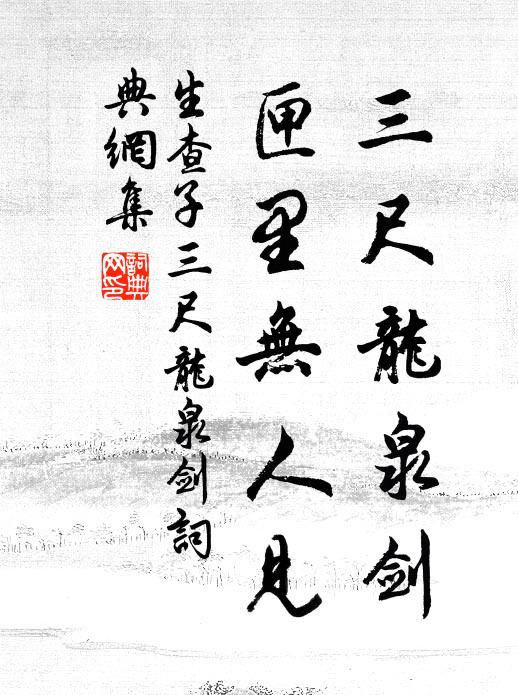 三尺龍泉劍
匣里無人見
生查子三尺龍泉劍詞
典網集
詞典
网印